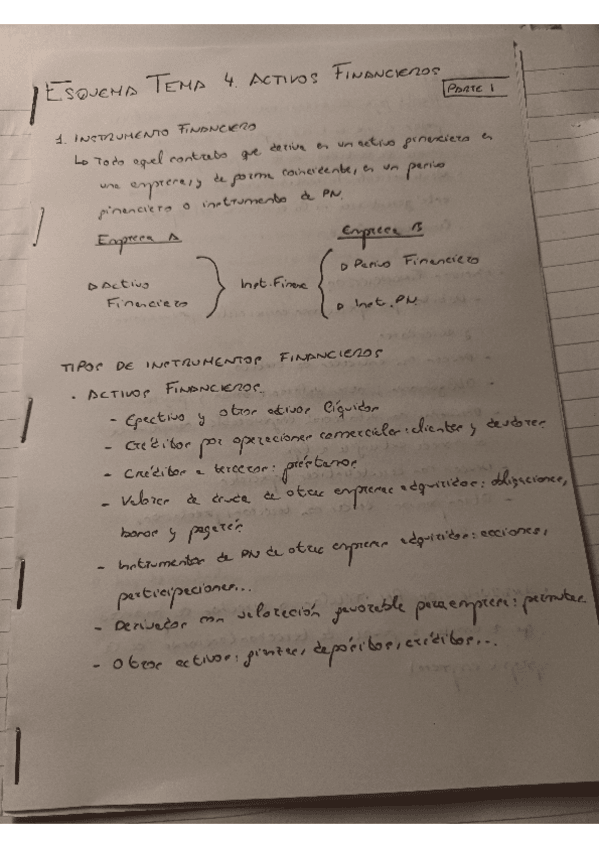 ESQUEMA TEMA 4. ACTIVOS FINANCIEROS
PARTE 1
1. INSTRUMENTO FINANCIERO
↳ Todo aquel contrato que deriva en un activo financiero en
una empresa, y de forma coincidente, en un pasivo
financiero o instrumento de PN.
Empresa A
Empresa B
▷ Activo
Financiero
Inst. Financ
▷ Pasivo Financiero
▷ Inst. PN
TIPOS DE INSTRUMENTOS FINANCIEROS
· ACTIVOS FINANCIEROS.
- Efectivo y otros activos líquidos
- Créditos por operaciones comerciales: clientes y deudores
- Créditos a terceros: préstamos
- Valores de deuda de otras empresas adquiridos: obligaciones,
bonos y pagarés
- Instrumentos de PN de otras empresas adquiridos: acciones,
participaciones...
- Derivados con valoración favorable para empresa: permutas
- Otros activos: fianzas, depósitos, créditos,...